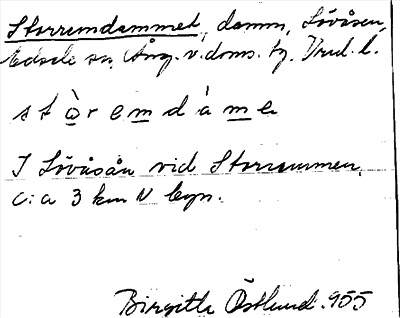 Storremdammet, damm, Lövåsen,
Edsele sn, Ång. v. doms. tg. Vnl. l.
stòremdàme
I Lövåsån vid Storremmen,
c:a 3 km N byn.
Birgitta Östlund. 955